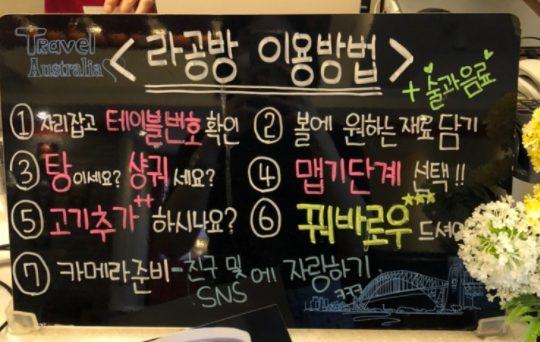 Travel
Australia
< 라공방 이용방법 >
+ 술과음료
① 자리잡고 테이블번호 확인
② 볼에 원하는 재료 담기
③ 탕이세요? 샹궈세요?
④ 맵기단계 선택!!
⑤ 고기추가++ 하시나요?
⑥ 꿔바로우*** 드셔
⑦ 카메라준비 - 친구 및 SNS에 자랑하기
ㅋㅋㅋ